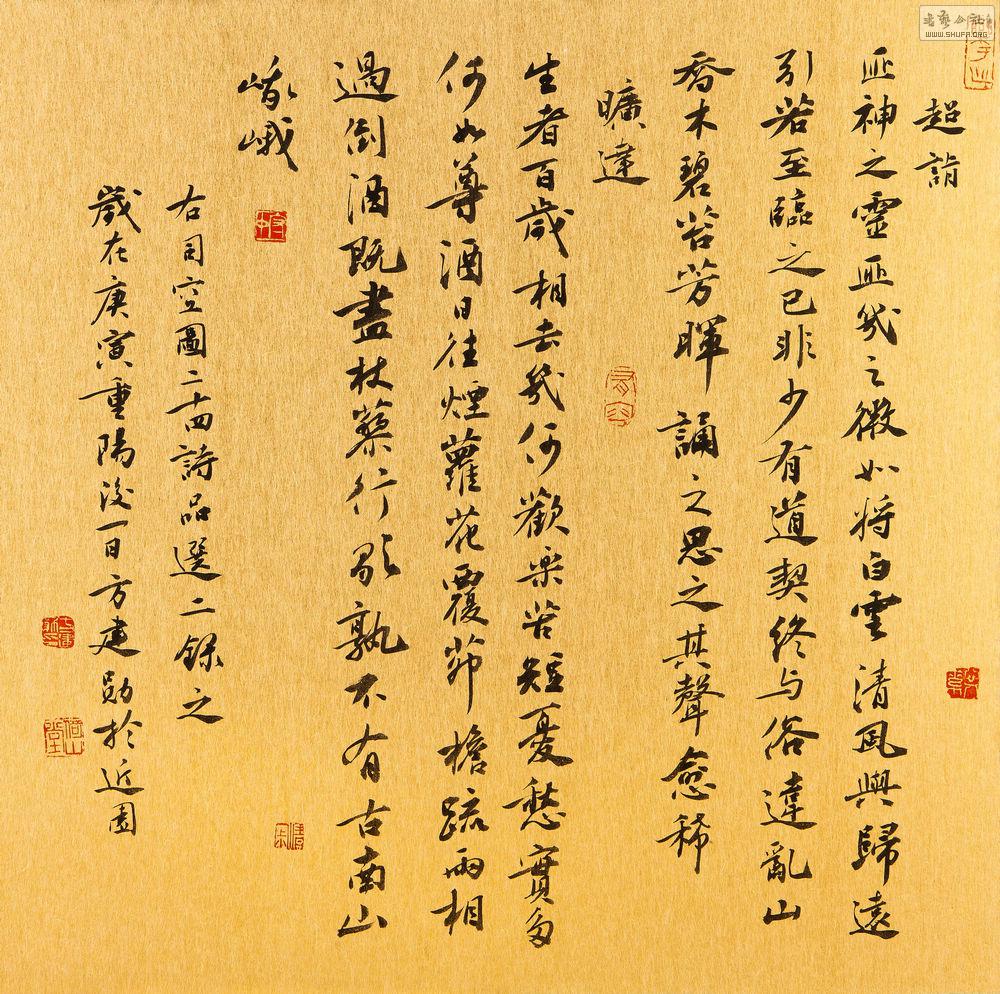 超詣
匪神之靈匪幾之微如將白雲清風與歸遠
引若至臨之已非少有道契終与俗違亂山
喬木碧苔芳暉誦之思之其聲愈稀
曠達
生者百歲相去幾何歡樂苦短憂愁實多
何如尊酒日往煙蘿花覆茆檐疏雨相
過倒酒既盡杖藜行歌孰不有古南山
峨峨
右司空圖二十四詩品選二錄之
歲在庚寅重陽後一日方建勛於近園
書藝公社
WWW.SHUFA.ORG